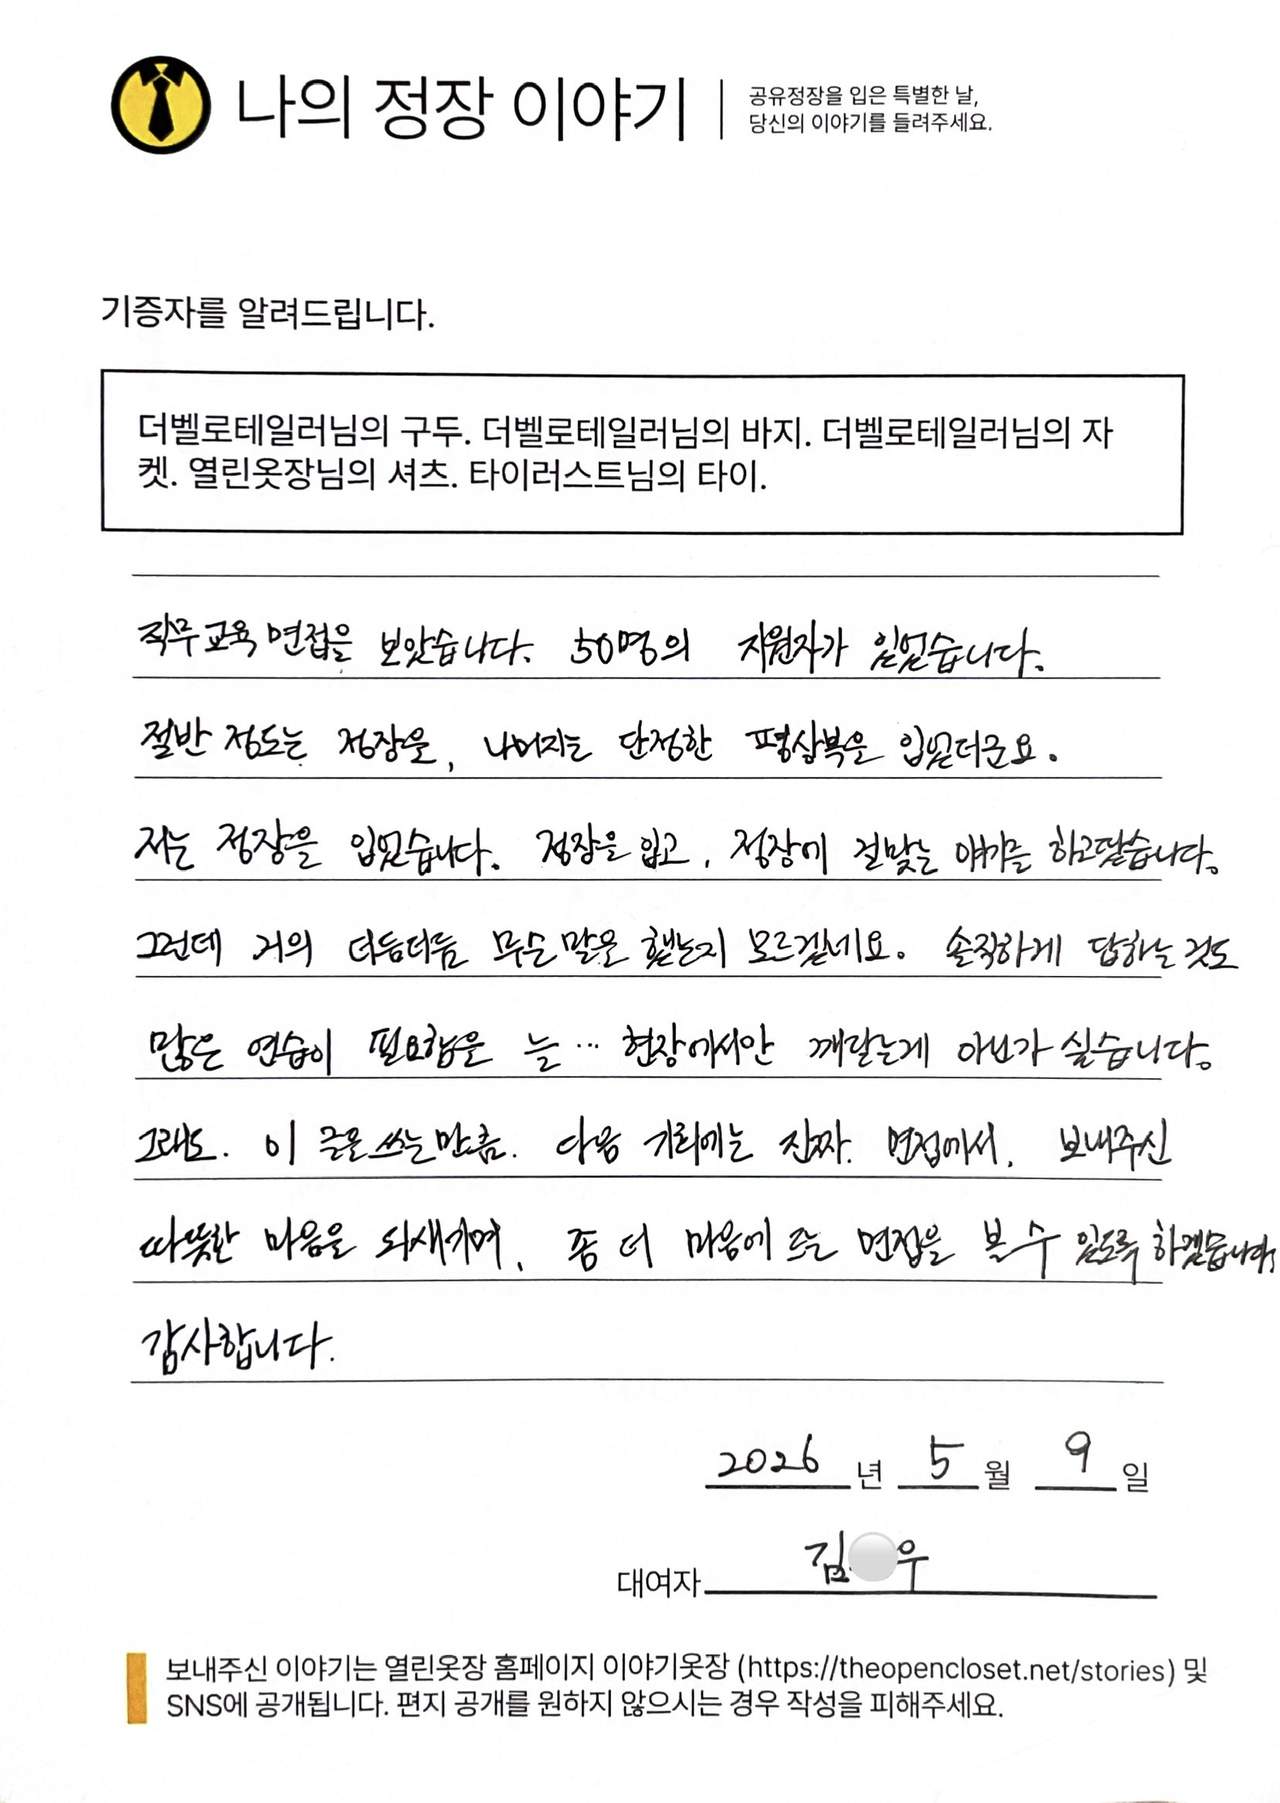 나의 정장 이야기
공유정장을 입은 특별한 날,
당신의 이야기를 들려주세요.
기증자를 알려드립니다.
더벨로테일러님의 구두. 더벨로테일러님의 바지. 더벨로테일러님의 자
켓. 열린옷장님의 셔츠. 타이러스트님의 타이.
직무교육 면접을 보았습니다. 50명의 지원자가 있었습니다.
절반 정도는 정장을, 나머지는 단정한 평상복을 입었더군요.
저는 정장을 입었습니다. 정장을 입고, 정장에 걸맞는 얘기를 하고팠습니다.
그런데 거의 더듬더듬 무슨 말을 했는지 모르겠네요. 솔직하게 답하는 것도
많은 연습이 필요함을 늘… 현장에서만 깨닫는게 아닌가 싶습니다.
그래도. 이 글을 쓰는만큼. 다음 기회에는 진짜. 면접에서, 보내주신
따뜻한 마음을 되새기며, 좀 더 마음에 드는 면접을 볼 수 있도록 하겠습니다.
감사합니다.
2026 년 5 월 9 일
대여자 김 우
보내주신 이야기는 열린옷장 홈페이지 이야기옷장 (https://theopencloset.net/stories) 및
SNS에 공개됩니다. 편지 공개를 원하지 않으시는 경우 작성을 피해주세요.